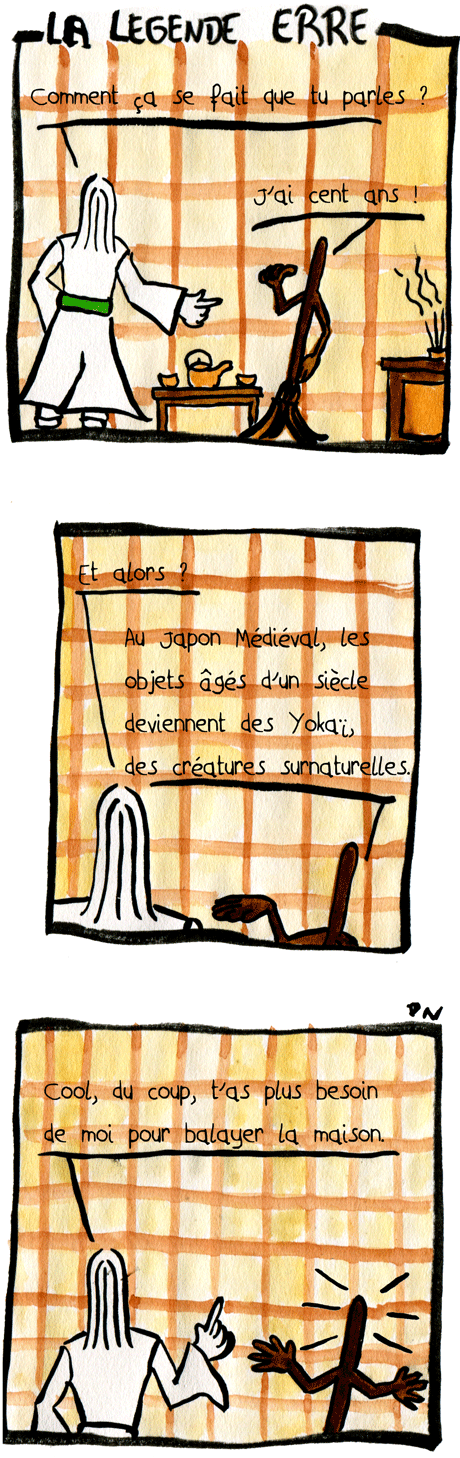 LA LEGENDE ERRE
Comment ça se fait que tu parles ?
J'ai cent ans !
Et alors ?
Au Japon Médiéval, les
objets âgés d'un siècle
deviennent des Yokaï,
des créatures surnaturelles.
PN
Cool, du coup, t'as plus besoin
de moi pour balayer la maison.